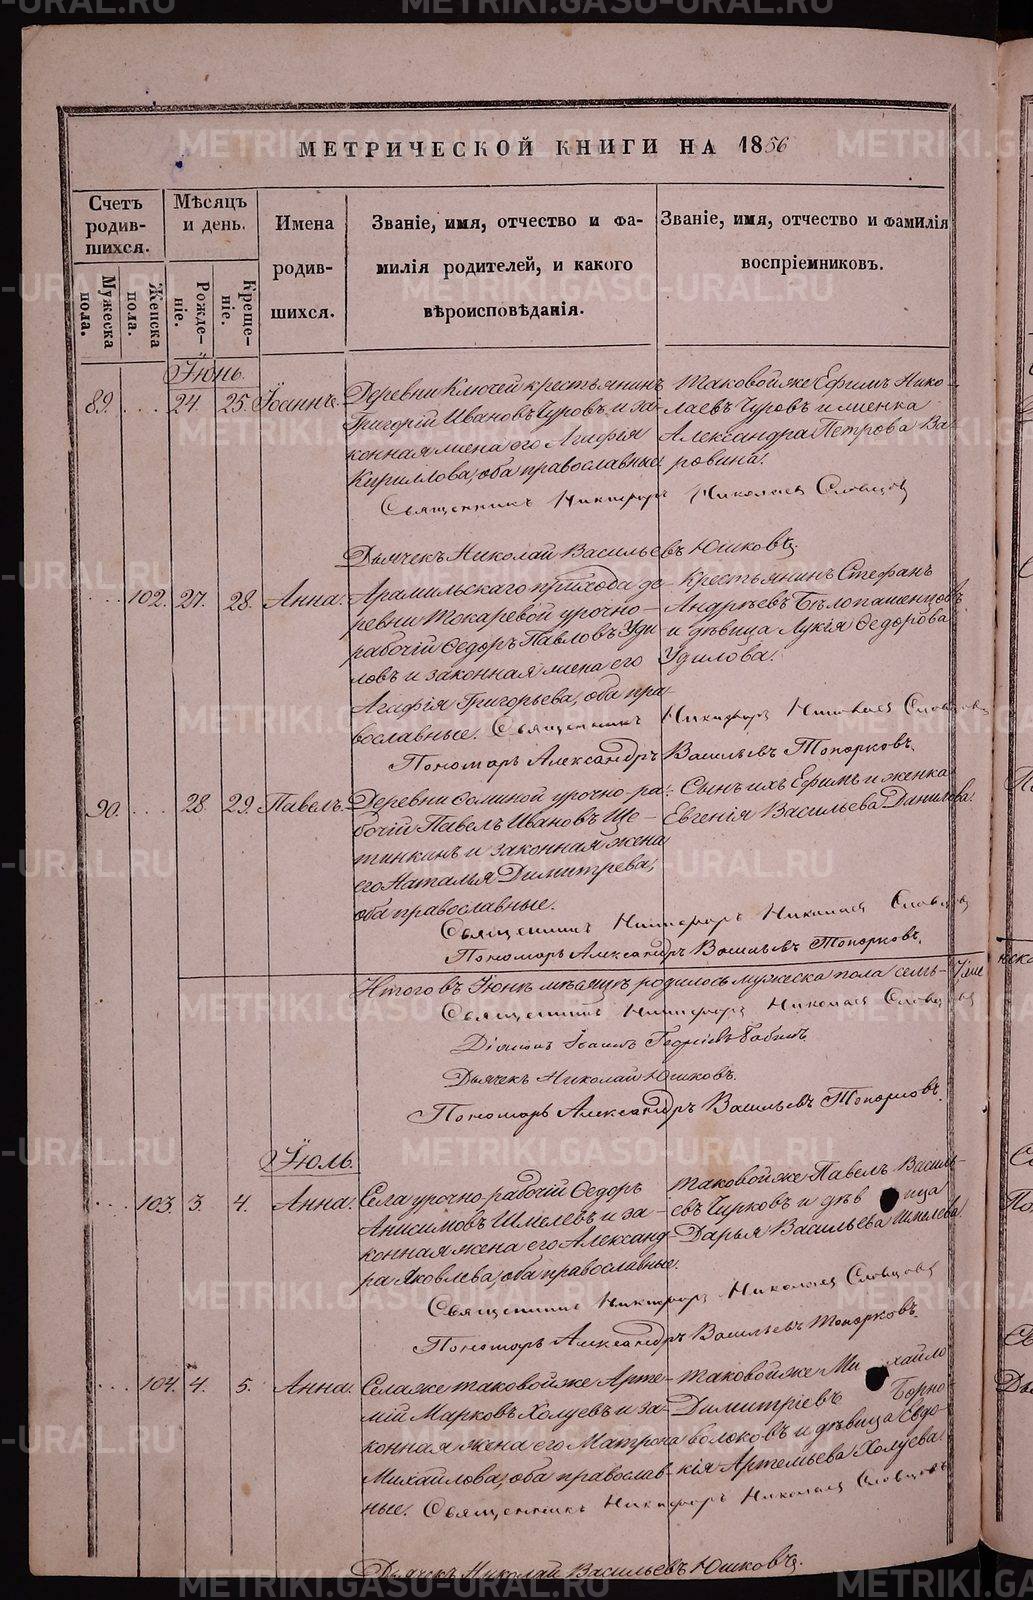 МЕТРИЧЕСКОЙ КНИГИ НА 1856
Счетъ родив-шихся.
Мѣсяцъ и день.
Имена родив-шихся.
Званіе, имя, отчество и фа-
милія родителей, и какого
вѣроисповѣданія.
Званіе, имя, отчество и фамилія
воспріемниковъ.
Мужеска пола.
Женска пола.
Рожде-ніе.
Креще-ніе.
Іюнь.
89. 24. 25. Іоаннъ.
Деревни Ключей крестьянинъ
Григорій Ивановъ Чуровъ и за-
конная жена его Агафія
Кириллова, оба православные.
Таковой же Ефимъ Нико-
лаевъ Чуровъ и женка
Александра Петрова Ва-
ровина.
Священникъ Никифоръ Николаевъ Словцовъ
Дьячекъ Николай Васильевъ Юшковъ.
102. 27. 28. Анна.
Арамильскаго прихода де-
ревни Токаревой урочно-
рабочій Ѳедоръ Павловъ Уди-
ловъ и законная жена его
Агафія Григорьева, оба пра-
вославные.
Крестьянинъ Стефанъ
Андреевъ Бѣлопашенцовъ
и дѣвица Лукія Ѳедорова
Удилова.
Священникъ Никифоръ Николаевъ Словцовъ
Пономарь Александръ Васильевъ Топорковъ.
90. 28. 29. Павелъ.
Деревни урочно-ра-
бочій Павелъ Ивановъ Ще-
тинкинъ и законная жена
его Наталья Димитрева,
оба православные.
Сынъ ихъ Ефимъ и женка
Евгенія Васильева Данилова.
Священникъ Никифоръ Николаевъ Словцовъ
Пономарь Александръ Васильевъ Топорковъ.
Итого въ Іюнѣ мѣсяцѣ родилось мужеска пола семь-
Священникъ Никифоръ Николаевъ Словцовъ
Діаконъ Іоаннъ Георгіевъ Бабинъ
Дьячекъ Николай Юшковъ.
Пономарь Александръ Васильевъ Топорковъ.
Іюль.
103. 3. 4. Анна.
Села урочно-рабочій Ѳедоръ
Анисимовъ Шмелевъ и за-
конная жена его Александ-
ра Яковлева, оба православные.
Таковой же Павелъ Василь-
евъ Чирковъ и дѣвица
Дарья Васильева Шмелева.
Священникъ Никифоръ Николаевъ Словцовъ
Пономарь Александръ Васильевъ Топорковъ.
104. 4. 5. Анна.
Села же таковой же Арте-
мій Марковъ Холуевъ и за-
конная жена его Матрона
Михайлова, оба православ-
ные.
Таковой же Михайло
Димитріевъ Борно-
волоковъ и дѣвица Евдо-
кія Артемьева Холуева.
Священникъ Никифоръ Николаевъ Словцовъ
Дьячекъ Николай Васильевъ Юшковъ.
METRIKI.GASO-URAL.RU